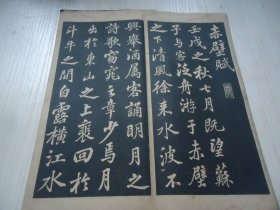 赤壁賦
壬戌之秋七月既望蘇
子与客泛舟游于赤壁
之下清風徐来水波不
興舉酒属客誦明月之
詩歌窈窕之章少焉月
出於東山之上裵回於
斗牛之間白露横江水